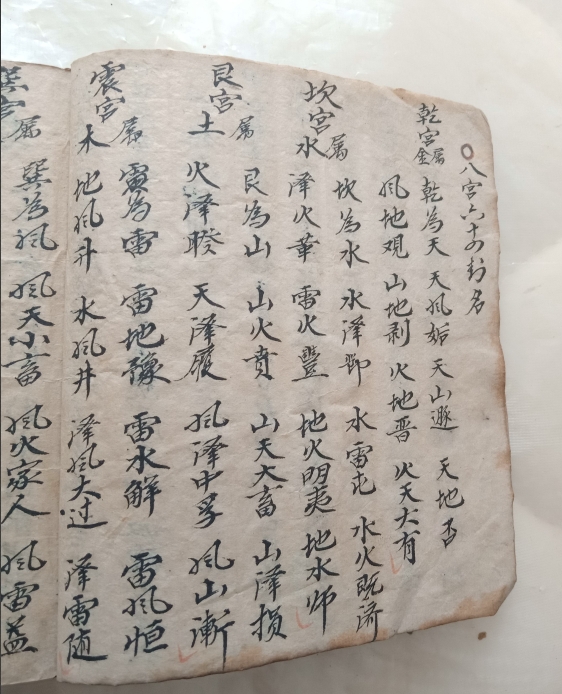 八宫六十四卦名
乾宫属金 乾為天 天风姤 天山遯 天地否
风地观 山地剥 火地晋 火天大有
坎宫属水 坎為水 水泽节 水雷屯 水火既济
泽火革 雷火豐 地火明夷 地水师
艮宫属土 艮為山 山火賁 山天大畜 山泽损
火泽睽 天泽履 风泽中孚 风山漸
震宫属木 震為雷 雷地豫 雷水解 雷风恒
地风升 水风井 泽风大过 泽雷随
巽宫属 巽為风 风天小畜 风火家人 风雷益